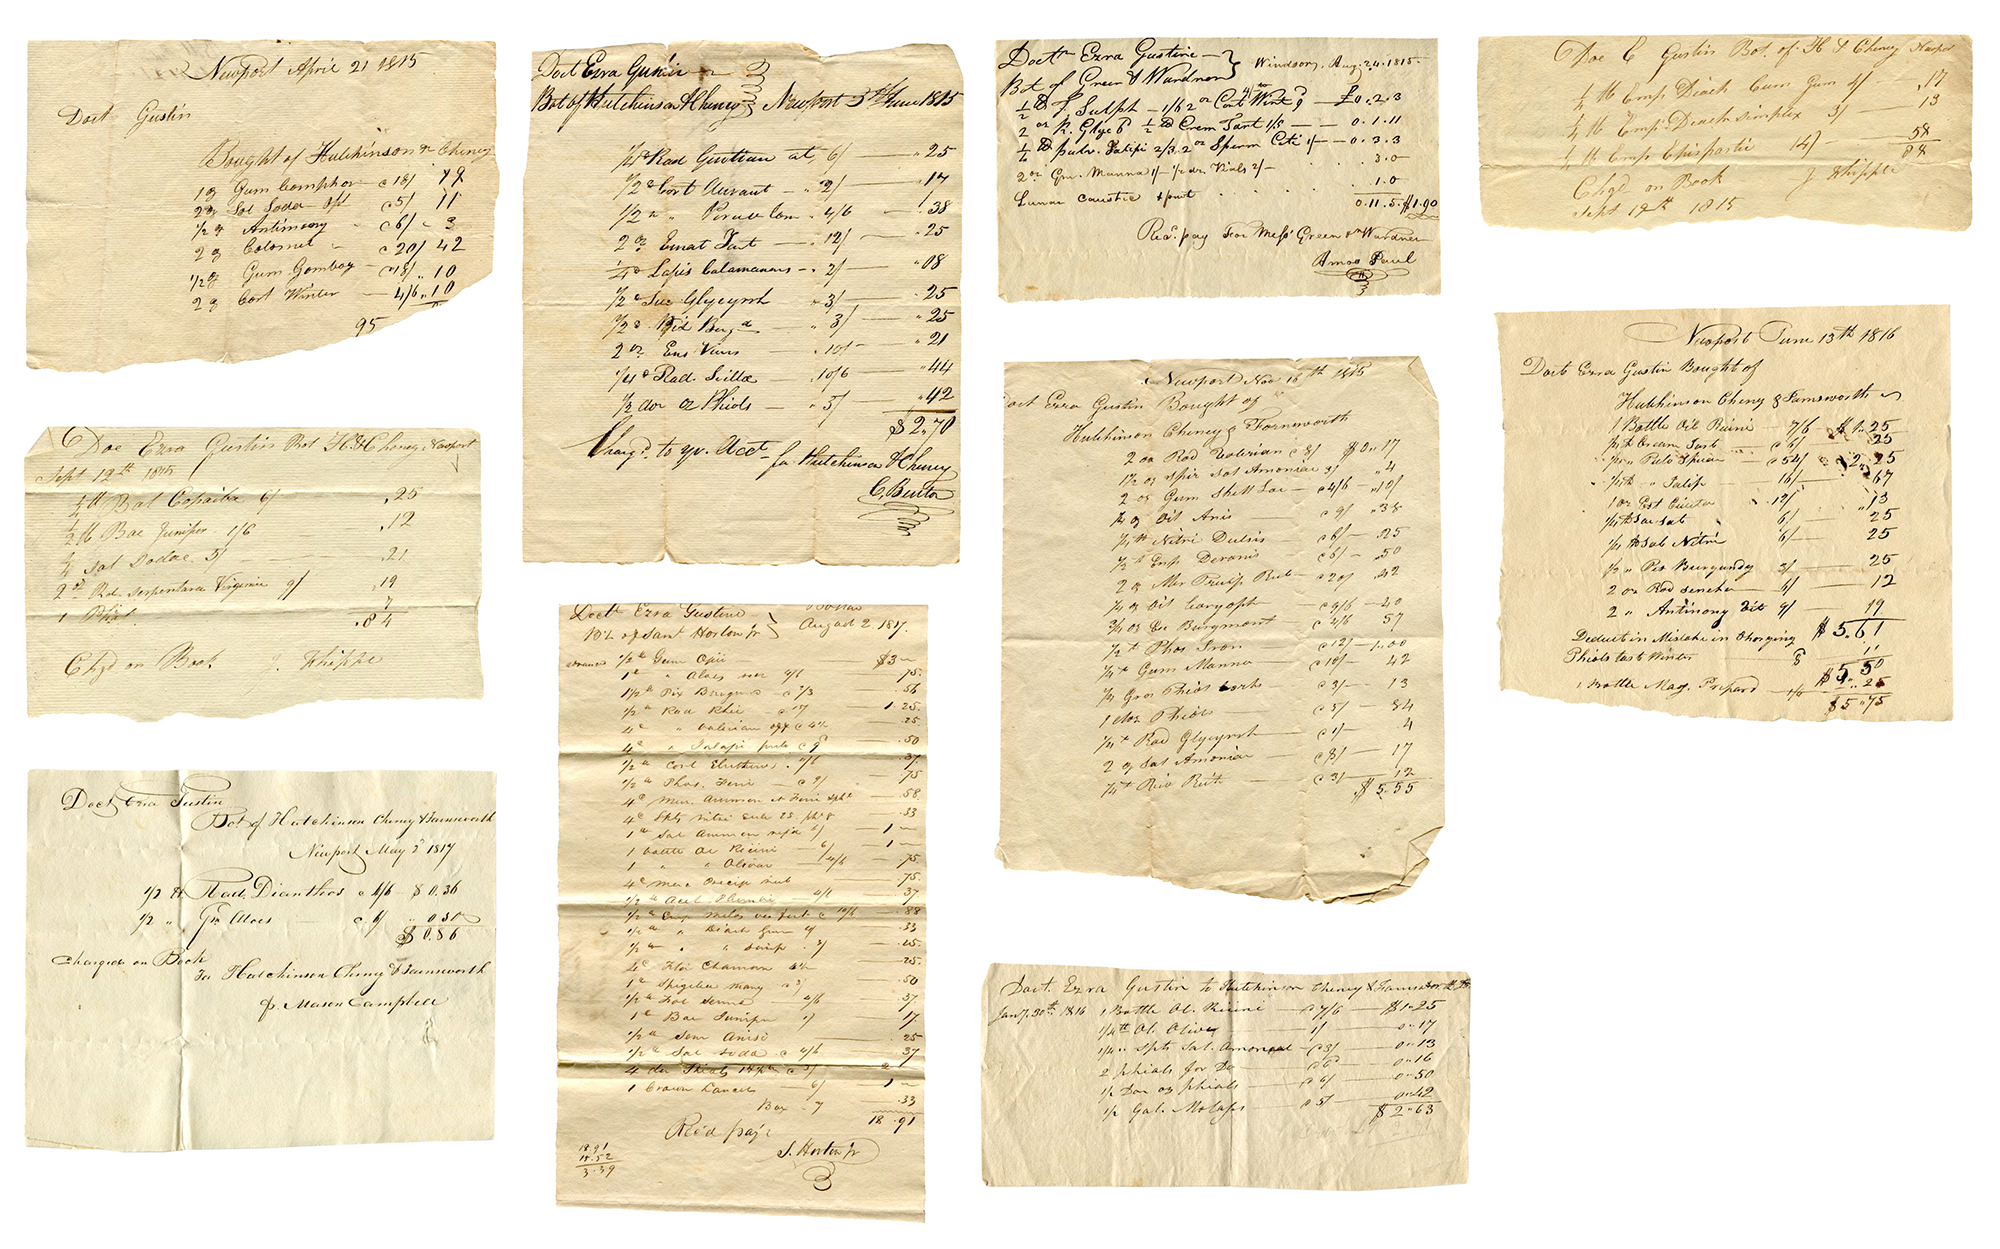 Newport April 21 1815
Doct Gustin
Bought of Hutchinson & Cheney
1 oz Gum Camphor c 18/ 19
2 oz Sal Soda c 5/ 11
1/2 oz Antimony c 6/ 3
2 oz Calomel c 20/ 42
1/2 oz Gum Gambog c 18/ 10
2 oz Cort Winter 4/6 10
95
Doc Ezra Gustin Bot H. & Cheney Newport
Sept 12th 1815
1/4 lb Bal Copaiba 6/ .25
1/2 lb Bac Juniper 1/6 .12
1/4 Sal Sodae 5/ .21
2 oz Rd. Serpentara Virginia 9/ .19
1 Phial 7
.84
Chgd on Book J. Whipple
Doct Ezra Gustin
Bot of Hutchinson Cheney & Farnsworth
Newport May 2d 1817
1/2 lb Rad. Dianthos c 4/6 $ 0.36
1/2 " Gm Aloes c 6/ " 0.50
$ 0.86
Charged on Book
For Hutchinson Cheney & Farnsworth
p Mason Campbell
Doct Ezra Gustin
Bot of Hutchinson & Cheney Newport 5th June 1815
1/2 lb Rad Gentian at 6/ .25
1/2 " Cort Aurant " 2/ .17
1/2 " " Peruv Com 4/6 .38
2 oz Emet Tart 12/ .25
1/4 " Lapis Calamanaris 2/ " 08
1/2 " Suc Glycyrrh " 3/ .25
1/2 " Pix Burgd " 3/ " 25
2 oz Ens Vens " 10/ " 21
1/4 " Rad. Scillæ " 10/6 " 44
1/2 doz oz Phials " 5/ " 42
$ 2.70
Chargd. to yr. Acct for Hutchinson & Cheney
C. Benton
Doctr Ezra Gustine
Bt of Saml Horton Jr Boston August 2. 1817.
1/2 lb Gum Opii $3 —
1 " " Aloes 4/6 .75
1 1/2 " Pix Burgun c 2/3 .56
1/2 " Rad Rhei c 1.25
4 " " Valerian .25
4 " " Jalapi pulv c 9/ .50
1/2 " Cort Eleutheri 4/6 .37
1/2 " Phos. Ferri c 9/ 75
4 " Mur. Ammon et Ferri .58
4 " Spts Nitri .33
1 " Sal Ammon 6/ 1 —
1 bottle Ol Ricini 6/ 1 —
1 " " Olivar 4/6 .75
4 " Merc Precip rub .75
1/2 " Acet Plumbi 4/6 37
1/2 " Emp Melos c 10/6 .88
1/2 " " Diach Gum 4/ .33
1/2 " " " simp 3/ .25
4 " Flor Chamom .25
1 " Spigelia mary c 3/ .50
1/2 " Fol Senna 4/6 .37
1 " Bac Juniper 1/ 17
1/2 " Sem Anisi 25
1/2 " Sal Soda c 4/6 .37
4 doz Phials c 3/ 2
1 Crown Lancet 6/ 1 —
Box .33
18.91
Rec'd pay't
S. Horton Jr
18.91
15.52
3.39
Doctr Ezra Gustine
Bot of Green & Wardner Windsor, Aug. 24. 1815.
1/2 lb f. Sulph 1/6 2 oz Cort Wint 9 £0.2.3
2 oz R. Glyc 6 1/2 lb Crem Tart 1/5 0.1.11
1/4 lb pulv. Jalipi 2/3. 2 oz Sperm Ceti 1/ 0.3.3
2 oz Gm. Manna 1/ 1/2 doz Vials 2/ 3.0
Lunar Caustic 1.0
0.11.5 $1.90
Recd. pay For Mess Green & Wardner
Amos Paul
Newport Nov 16th 1815
Doct Ezra Gustin Bought of
Hutchinson Cheney & Farnsworth
2 oz Rad Valerian c 8/ $0.17
1 1/2 oz Spir Sal Amoniac 3/ " 4
2 oz Gum Shell Lac c 4/6 " 10/
1/4 oz Oil Anis c 9/ " 38
1/4 lb Nitri Dulsis c 6/ .25
1/2 " Emp c 6/ .50
2 oz Mer Precip Rub c 20/ .42
1/4 oz Oil Caryoph c 9/6 .40
3/4 oz Ess Burgmont c 4/6 57
1/2 " Phos Iron c 12/ 1.00
1/4 " Gum Manna c 10/ 42
1/4 Gros Phial Corks c 3/ 13
1 doz Phials c 5/ 84
1/4 " Rad Glycyrrh c 1/ 4
2 oz Sal Amoniac c 8/ 17
1/4 " c 3/ 12
$ 5.55
Doct. Ezra Gustin to Hutchinson Cheney & Farnsworth Dr
Jany. 30th 1816 1 Bottle Ol. Ricini c 7/6 $1.25
1/4 lb Ol. Oliv 1/ 0.17
1/4 " Spts Sal. Amoniac c 3/ 0.13
2 phials for Do c 6d 0.16
1/2 Doz oz phials c 6/ 0.50
1/2 Gal. Molass c 5/ 0.42
$ 2.63
Doc E Gustin Bot. of H & Cheney Newport
1/4 lb Emp Diach Cum Gum 4/ .17
1/4 lb Emp. Diach simplex 3/ 13
1/4 lb Emp Epispastic 14/ 58
88
Chgd on Book J Whipple
Sept 12th 1815
Newport June 13th 1816
Doct Ezra Gustin Bought of
Hutchinson Cheney & Farnsworth
1 Bottle Oil Ricini 7/6 $ 1.25
1/2 lb Cream Tart c 6/ 25
1/4 " Pulv c 54/ 2.25
1/4 lb " Jalip 16/ 67
1 oz Ext Cicuta 12/ " 13
1/4 lb Sac Sat 6/ 25
1/4 lb Sal Nitri 6/ 25
1/2 " Pix Burgundy 3/ 25
2 oz Rad Seneka 6/ 12
2 " Antimony 9/ 19
$ 5.61
Deduct in Mistake in Charging
Phials last Winter 11
$ 5 50
1 Bottle Mag. Prepard 1/6 .25
$ 5.75